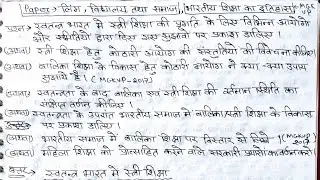 Paper - लिंग, विद्यालय तथा समाज, भारतीय शिक्षा का इतिहास
प्रश्न → स्वतन्त्र भारत में स्त्री शिक्षा की प्रगति के लिए विभिन्न आयोगों
और समितियों द्वारा दिए गए सुझावों पर प्रकाश डालिए।
(अथवा) स्त्री शिक्षा हेतु कोठारी आयोग की संस्तुतियों की विवेचना कीजिए।
(अथवा) बालिका शिक्षा के विकास हेतु कोठारी आयोग ने क्या-क्या उपाय
सुझाये हैं। (MGKVP-2017)
(अथवा) स्वतन्त्रता के बाद बालिका एवं स्त्री शिक्षा की वर्तमान स्थिति का
वर्णन कीजिए।
(अथवा) स्वतन्त्रता के उपरांत भारतीय समाज में बालिका/स्त्री शिक्षा के विकास
पर प्रकाश डालिए।
(अथवा) भारतीय समाज में बालिका शिक्षा पर विस्तार से लिखें। (MGKVP
(अथवा) महिला शिक्षा को प्रोत्साहित करने वाले सरकारी प्रयासों का वर्णन करो।
उत्तर → स्वतन्त्र भारत में स्त्री शिक्षा